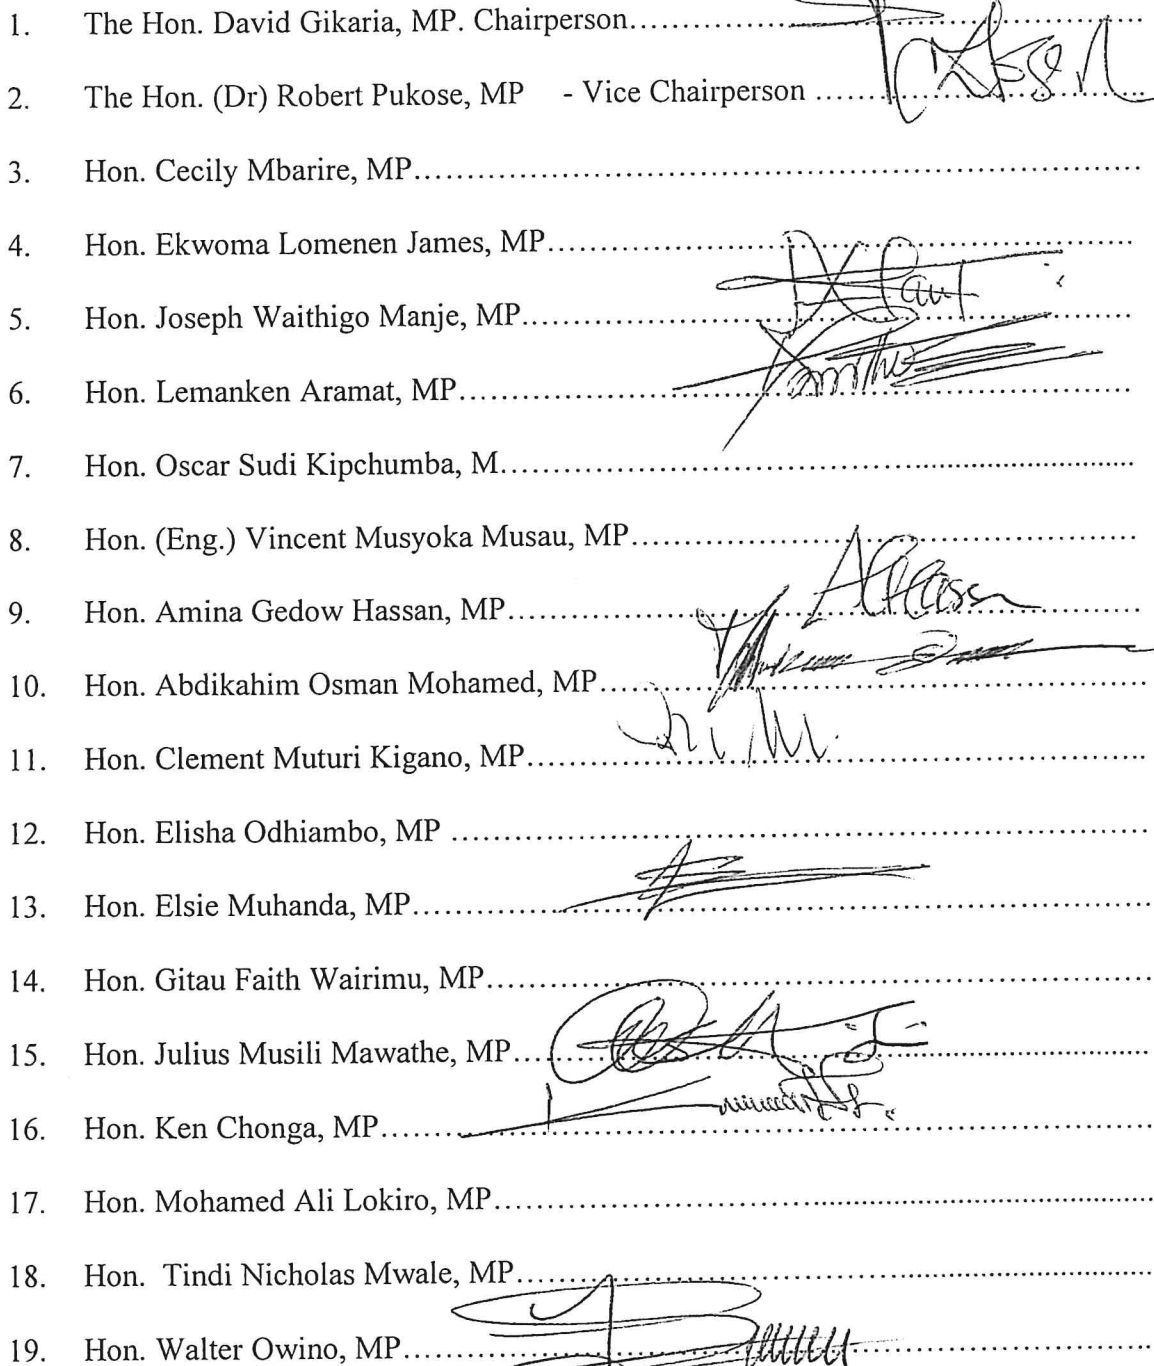 1. The Hon. David Gikaria, MP. Chairperson........................................................
2. The Hon. (Dr) Robert Pukose, MP - Vice Chairperson ....................................
3. Hon. Cecily Mbarire, MP.........................................................................
4. Hon. Ekwoma Lomenen James, MP............................................................
5. Hon. Joseph Waithigo Manje, MP..............................................................
6. Hon. Lemanken Aramat, MP.....................................................................
7. Hon. Oscar Sudi Kipchumba, M................................................................
8. Hon. (Eng.) Vincent Musyoka Musau, MP...................................................
9. Hon. Amina Gedow Hassan, MP................................................................
10. Hon. Abdikahim Osman Mohamed, MP......................................................
11. Hon. Clement Muturi Kigano, MP..............................................................
12. Hon. Elisha Odhiambo, MP ......................................................................
13. Hon. Elsie Muhanda, MP..........................................................................
14. Hon. Gitau Faith Wairimu, MP..................................................................
15. Hon. Julius Musili Mawathe, MP...............................................................
16. Hon. Ken Chonga, MP..............................................................................
17. Hon. Mohamed Ali Lokiro, MP.................................................................
18. Hon. Tindi Nicholas Mwale, MP................................................................
19. Hon. Walter Owino, MP............................................................................